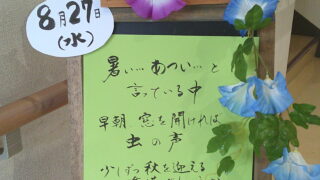 8月27日
(水)
暑い…あつい…と
言っている中
早朝 窓を開ければ
虫の声
少しずつ秋を迎える